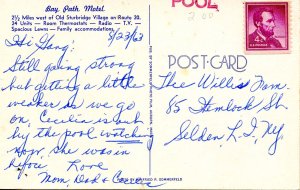 Bay Path Motel
2½ Miles west of Old Sturbridge Village on Route 20.
34 Units - Room Thermostats - Radio - T.V.
Spacious Lawns - Family accommodations.
POOL
8/23/63
Hi Gang:
Still going strong
but getting a little
weaker as we go
on. Cecilia is out
by the pool watching
now. She was in
before
Love
Mom, Dad &
POST CARD
The Willis Fam.
85 Hemlock St.
Selden, L.I., N.Y.
4¢